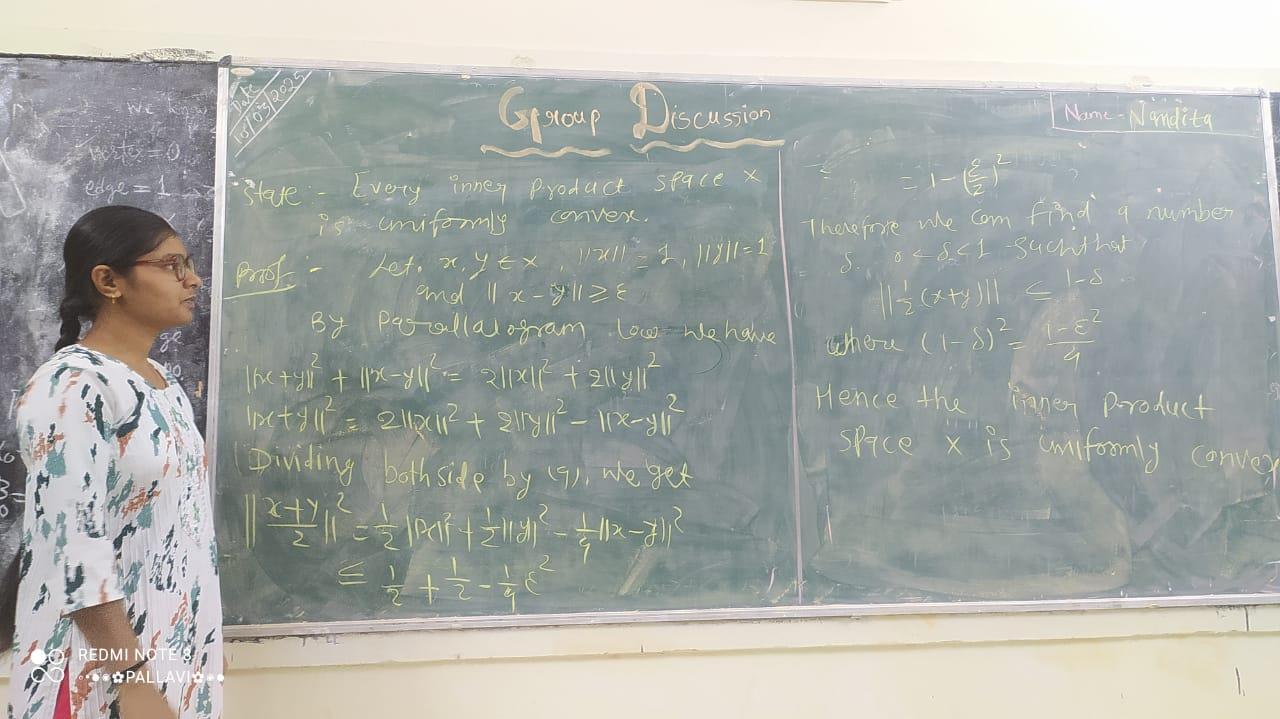 We know
vertex = 0
edge = 1
Date
10/03/2025
Group Discussion
Name - Nandita
State :- Every inner product space X
is uniformly convex.
Proof :- Let. x, y ∈ x, ||x|| = 1, ||y|| = 1
and || x - y || ≥ ε
By Parallalogram law we have
||x+y||² + ||x-y||² = 2||x||² + 2||y||²
||x+y||² = 2||x||² + 2||y||² - ||x-y||²
Dividing both side by (4), we get
||(x+y)/2||² = 1/2 ||x||² + 1/2 ||y||² - 1/4 ||x-y||²
≤ 1/2 + 1/2 - 1/4 ε²
= 1 - (ε/2)²
Therefore we can find a number
δ. 0 < δ < 1 such that
||1/2 (x+y)|| ≤ 1-δ
where (1-δ)² = (1-ε²)/4
Hence the inner product
space X is uniformly convex
REDMI NOTE 8
PALLAVI